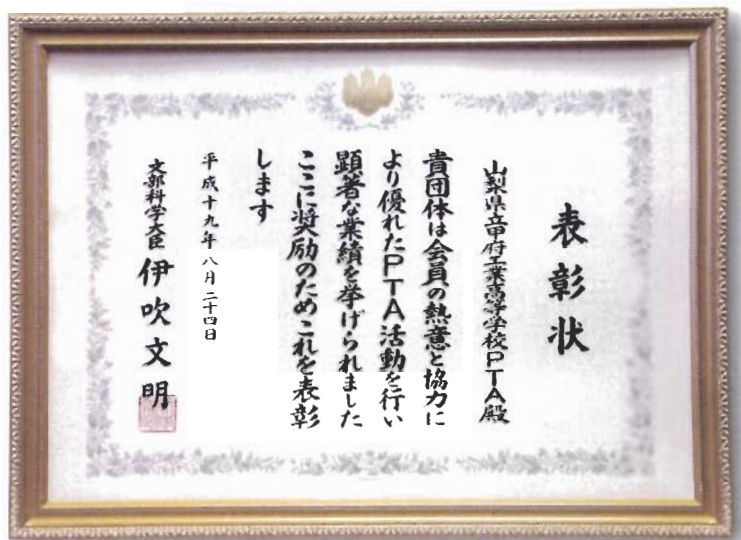 表彰状
山梨県立甲府工業高等学校PTA殿
貴団体は会員の熱意と協力に
より優れたPTA活動を行い
顕著な業績を挙げられました
ここに奨励のためこれを表彰
します
平成十九年八月二十四日
文部科学大臣 伊吹文明